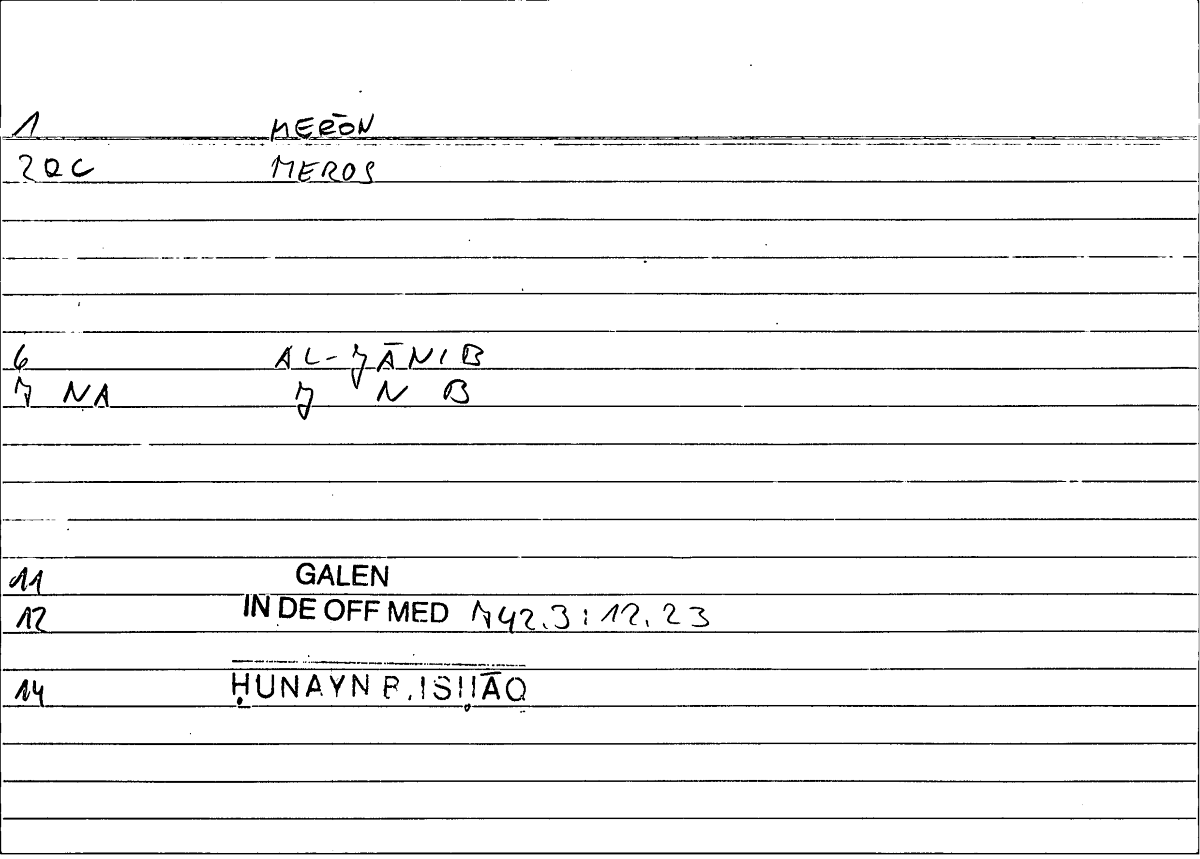 1 MERŌN
2QC MEROS
6 AL-JĀNIB
7 NA J N B
11 GALEN
12 IN DE OFF MED 742.3:12.23
14 ḤUNAYN B. ISḤĀQ